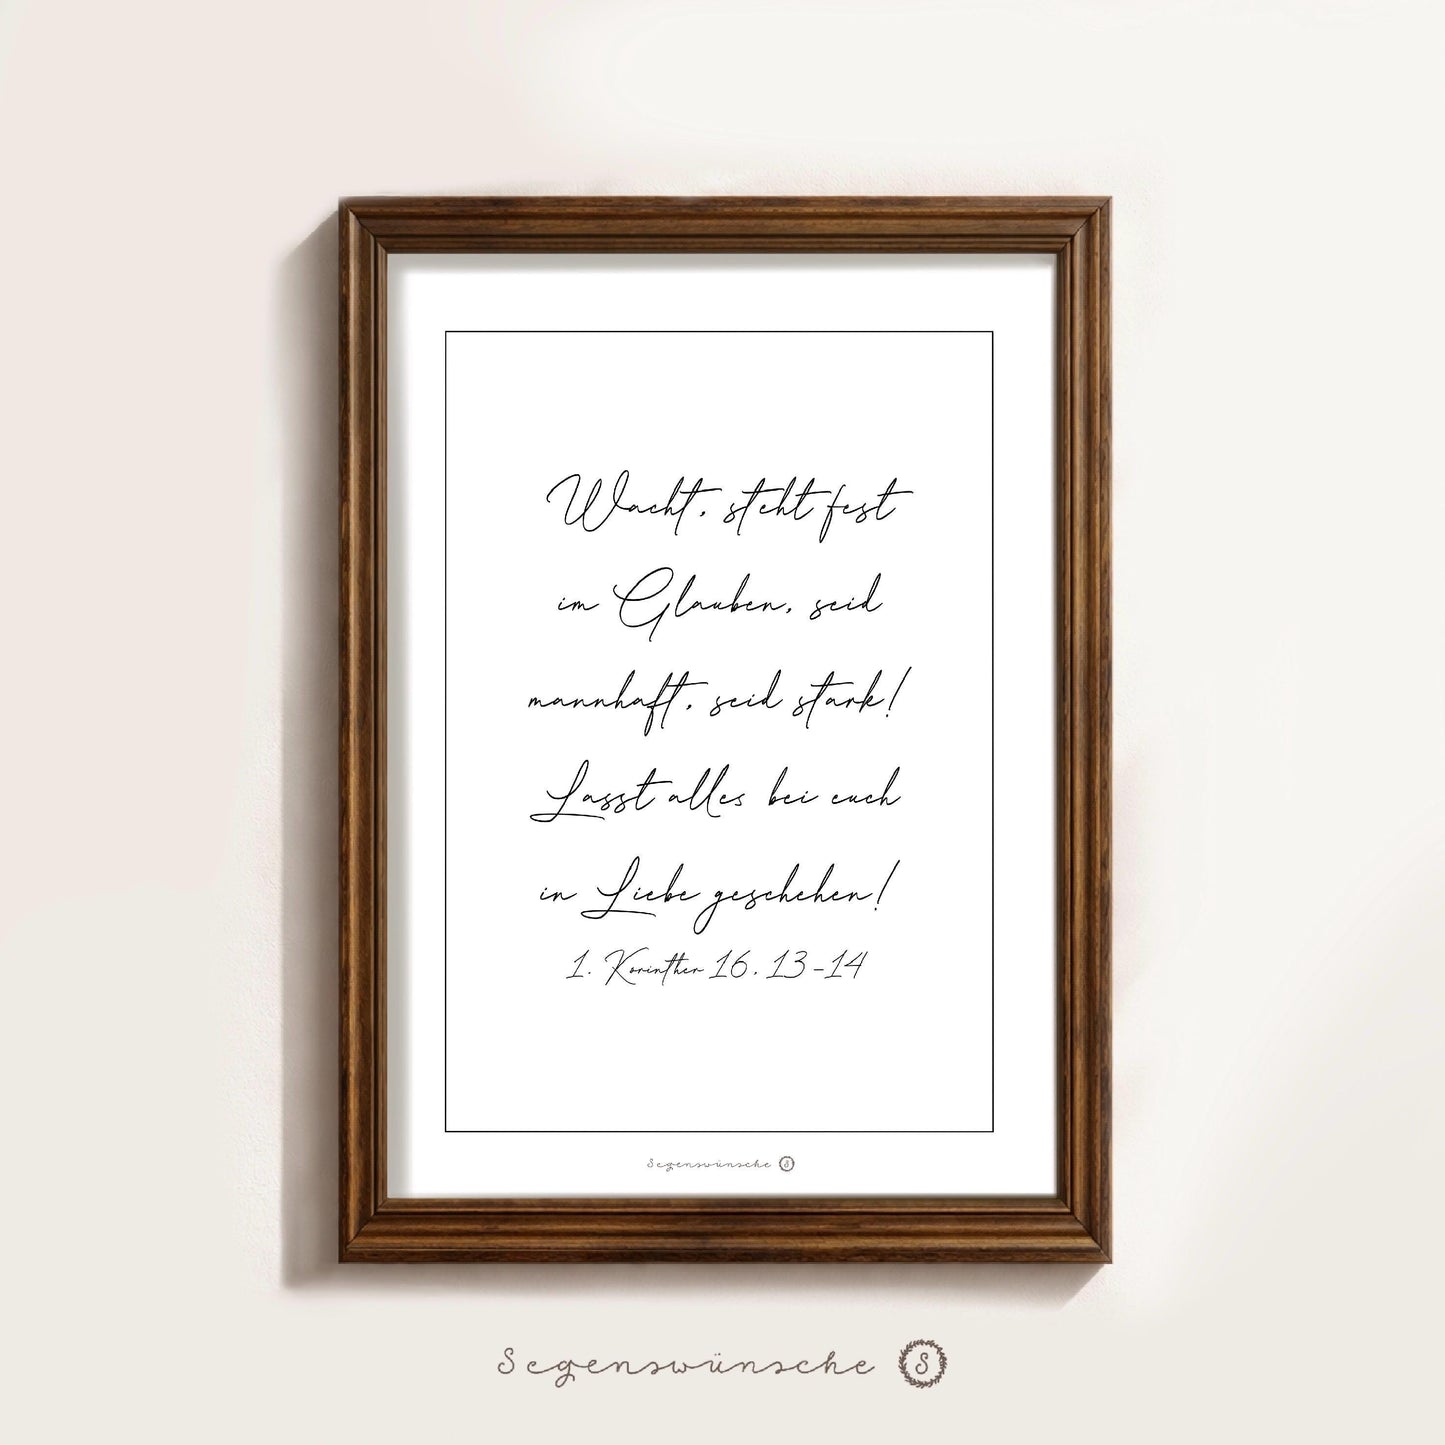 Wacht, steht fest
im Glauben, seid
mannhaft, seid stark!
Lasst alles bei euch
in Liebe geschehen!
1. Korinther 16, 13-14
Segenswünsche S
Segenswünsche S